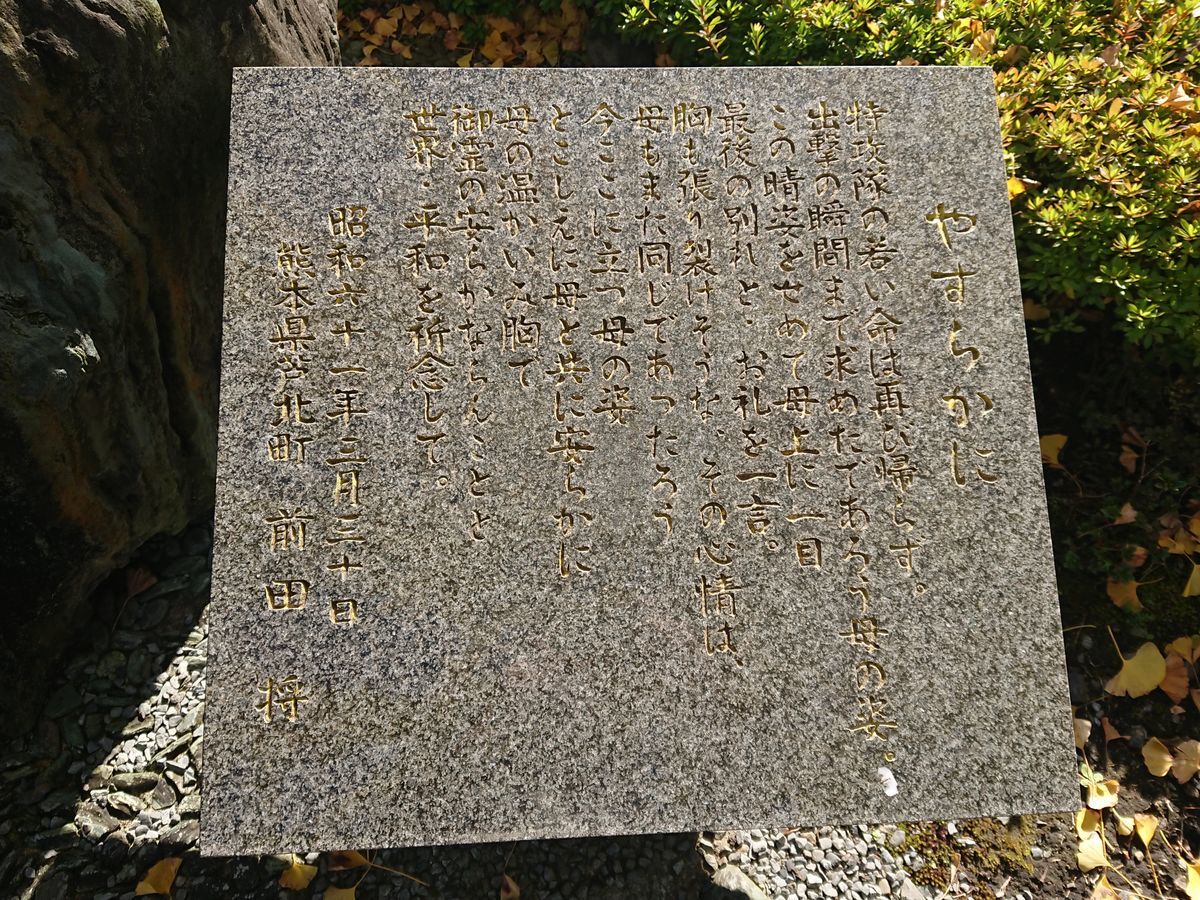 やすらかに
特攻隊の若い命は再び帰らず。
出撃の瞬間まで求めたであろう母の姿。
この晴姿をせめて母上に一目
最後の別れと、お礼を一言。
胸も張り裂けそうな、その心情は、
母もまた同じであったろう
今ここに立つ母の姿
とこしえに母と共に安らかに
母の温かいみ胸で
御霊の安らかならんことと
世界・平和を祈念して。
昭和六十一年三月三十日
熊本県芦北町 前田 将